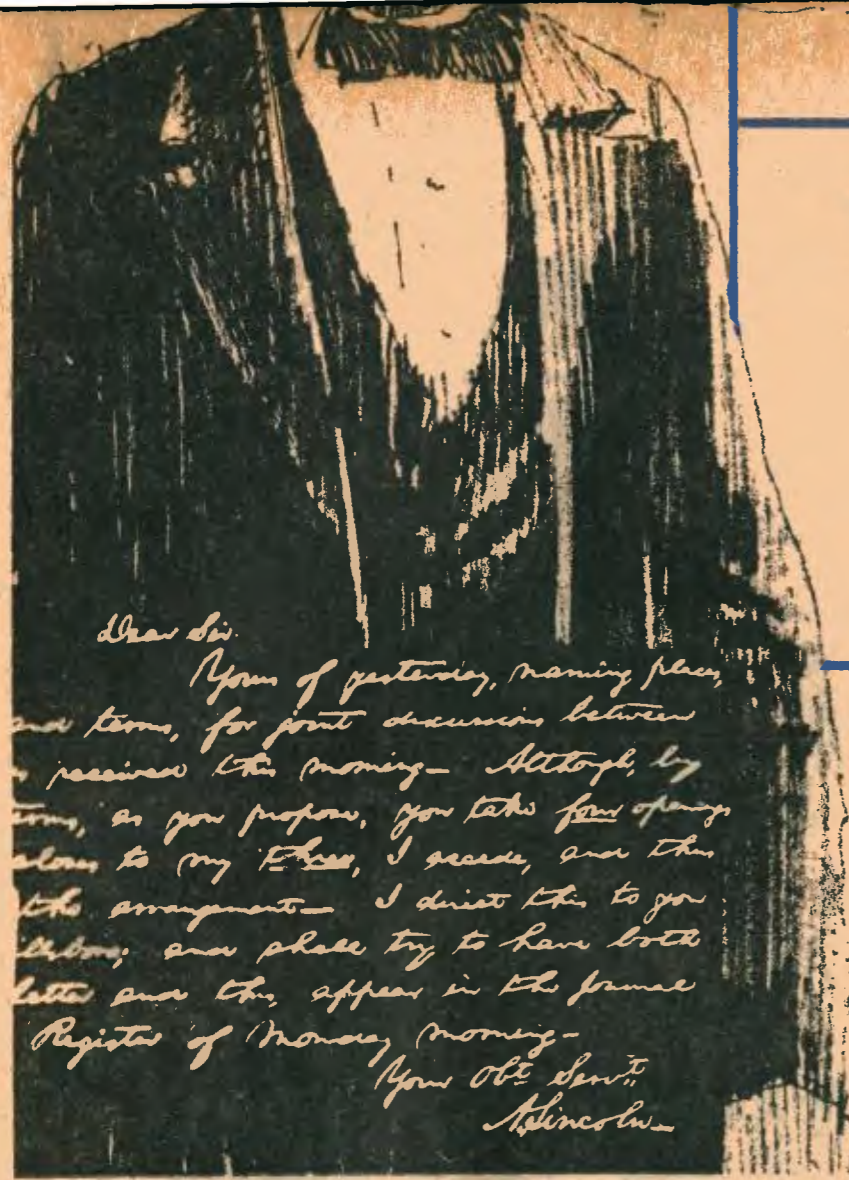 Dear Sir.
Yours of yesterday, naming places,
and terms, for joint discussions between
received this morning— Although, by
as you propose, you take four openings
closes to my three, I accede, and thus
the arrangement— I direct this to you
and shall try to have both
letter and this, appear in the Journal
Register of Monday morning—
Your Obt Servt.
A. Lincoln—